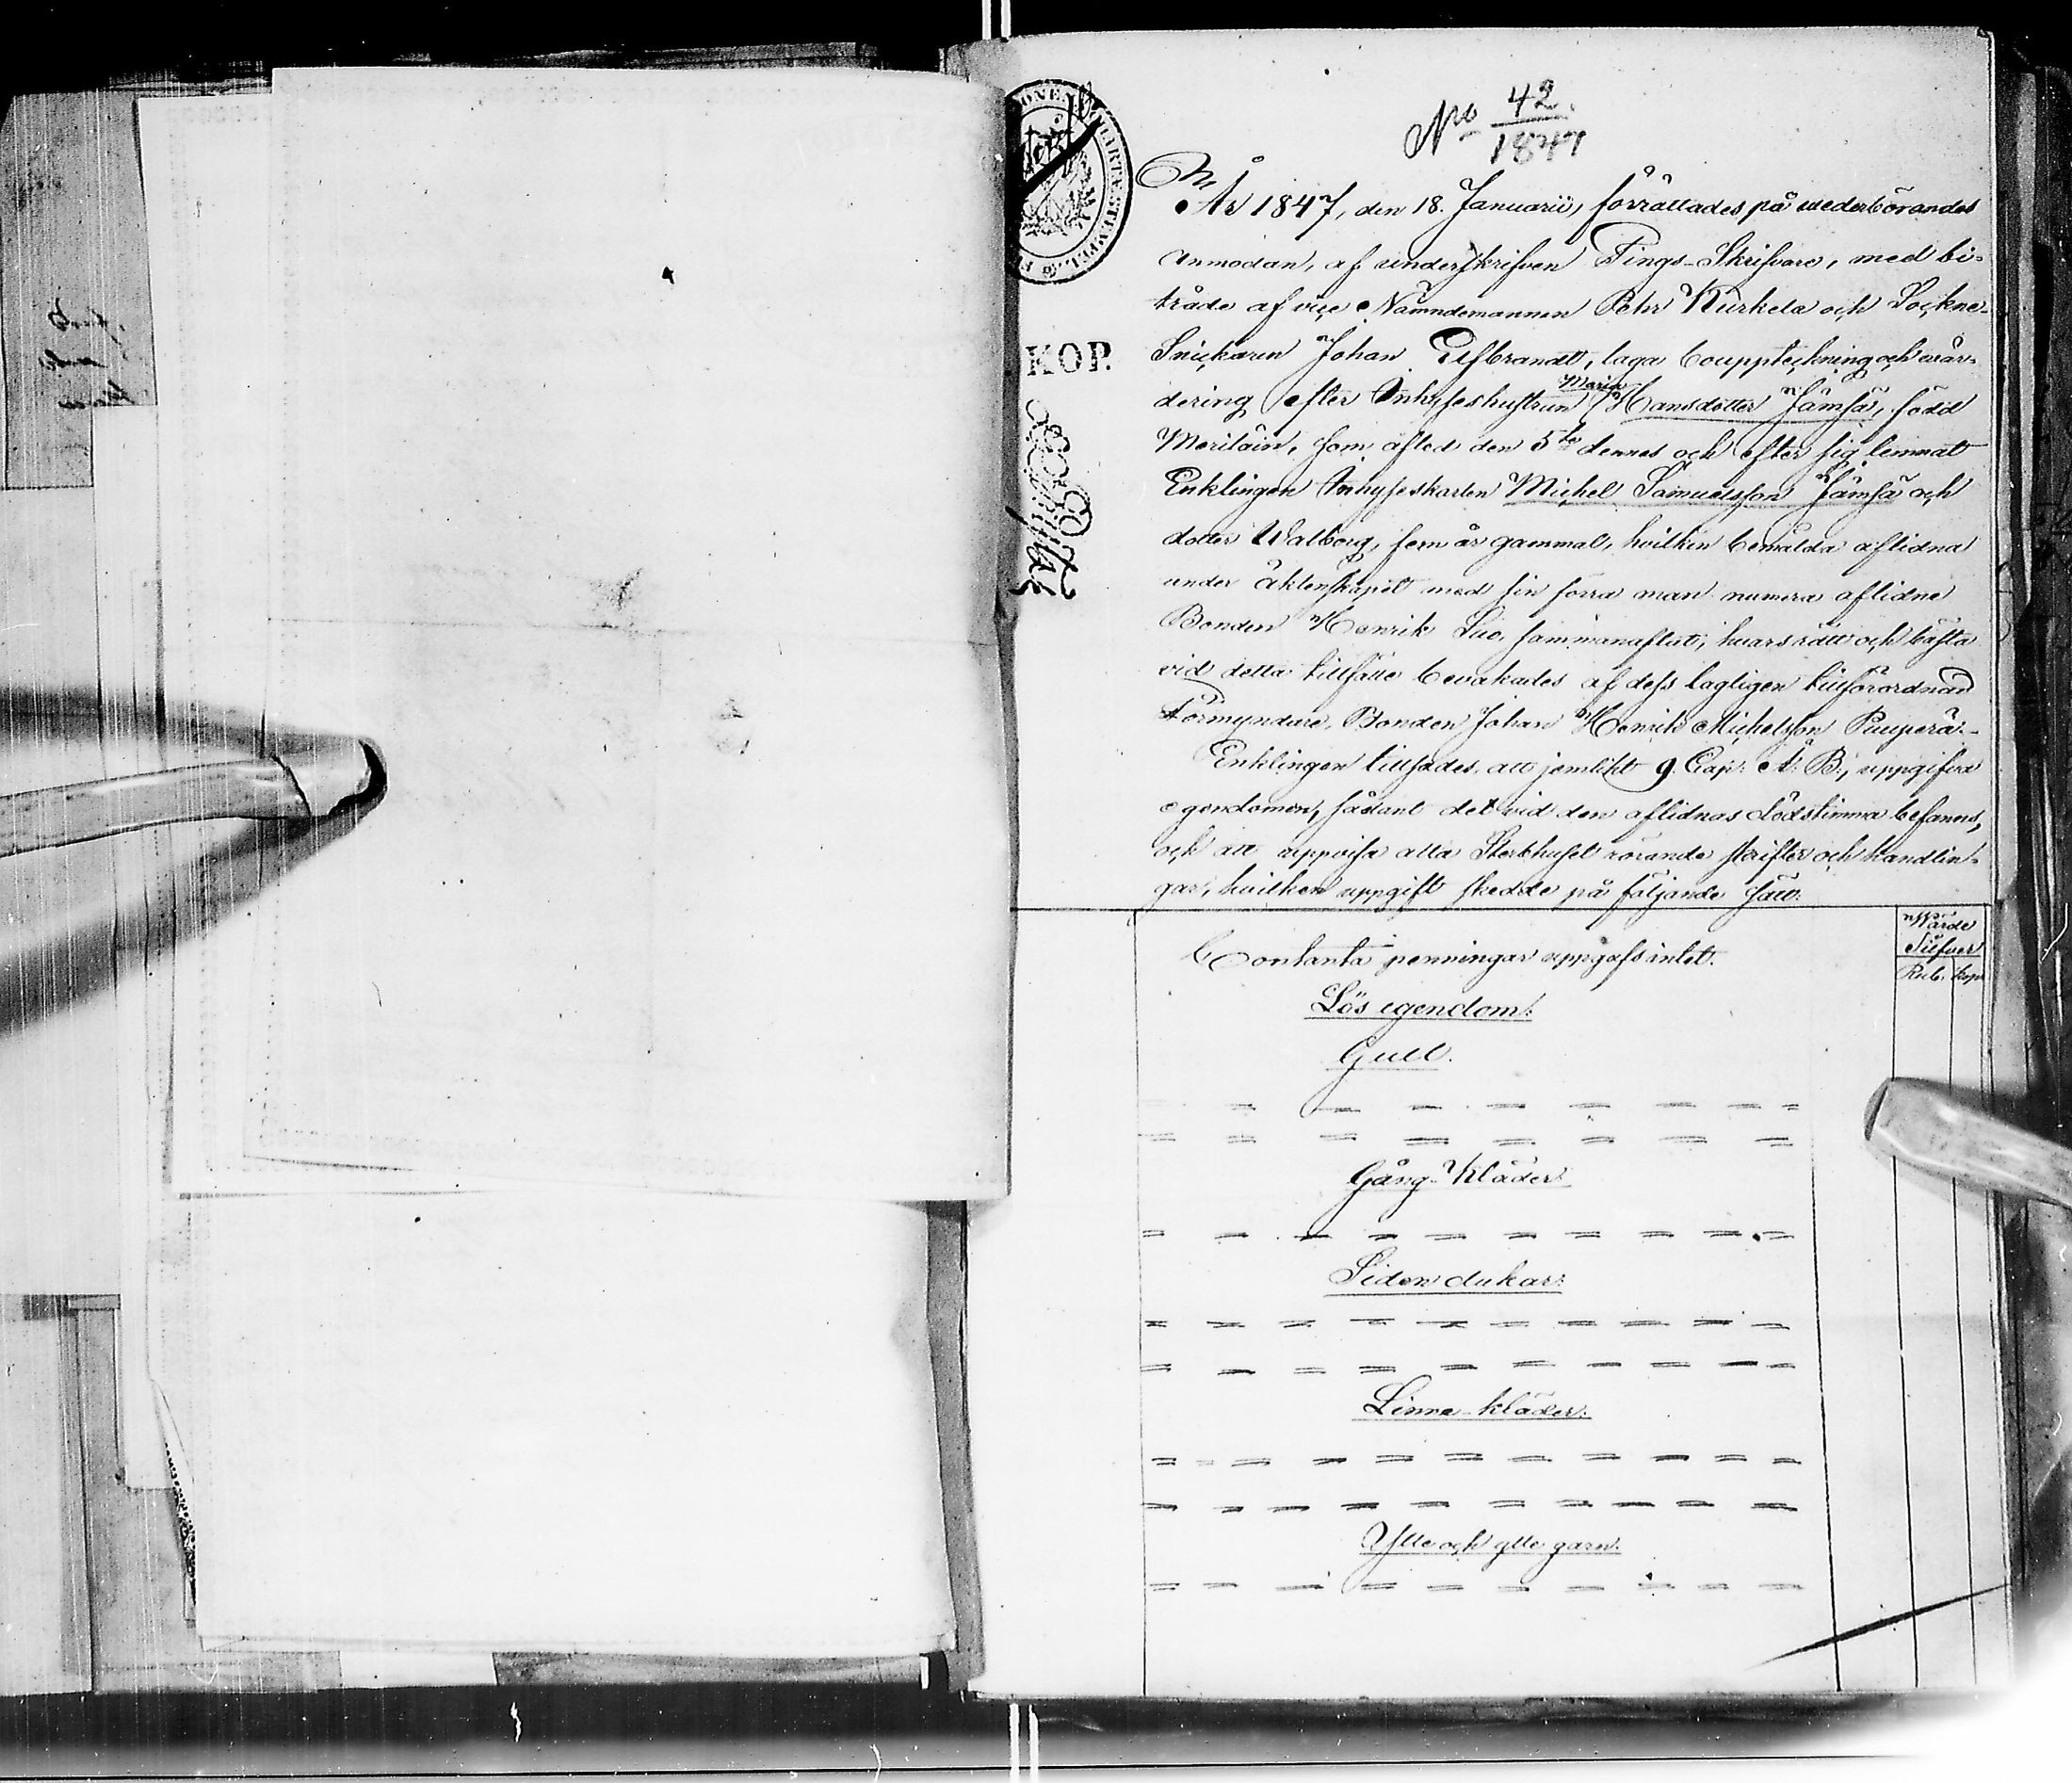 No 42
1847
År 1847, den 18. Januarii, förrättades på wederbörandes
anmodan, af underskrifven Tings-Skrifvare, med bi-
träde af vice Nämndemannen Pehr Kurkela och Sockne-
Snickaren Johan Elfbrandt, laga bouppteckning och wär-
dering efter Inhyseshustrun Maria Hansdotter Jämsä, född
Meriläin, som afled den 5te dennes och efter sig lemnat
Enklingen Inhyseskarlen Michel Samuelsson Jämsä och
dotter Walborg, fem år gammal, hvilken bemälda aflidna
under äktenskapet med sin förra man numera aflidne
Bonden Henrik Luo, sammanaflat, hvars rätt och bästa
vid detta tillfälle bevakades af dess lagligen tillförordnad
Förmyndare, Bonden Johan Henrik Michelsson Puuperä.-
Enklingen tillsades, att jemlikt 9. Cap: Ä: B:, uppgifva
egendomen, sådant det vid den aflidnas dödstimma befanns,
och att uppvisa alla Sterbhuset rörande skrifter och handlin-
gar, hvilken uppgift skedde på följande sätt:
KOP.
Wärde
Silfver
Rub. kop.
Contanta penningar uppgafs intet.
Lös egendom:
Gull.
Gång-Kläder:
Siden dukar:
Linne-kläder:
Ylle och ylle garn: